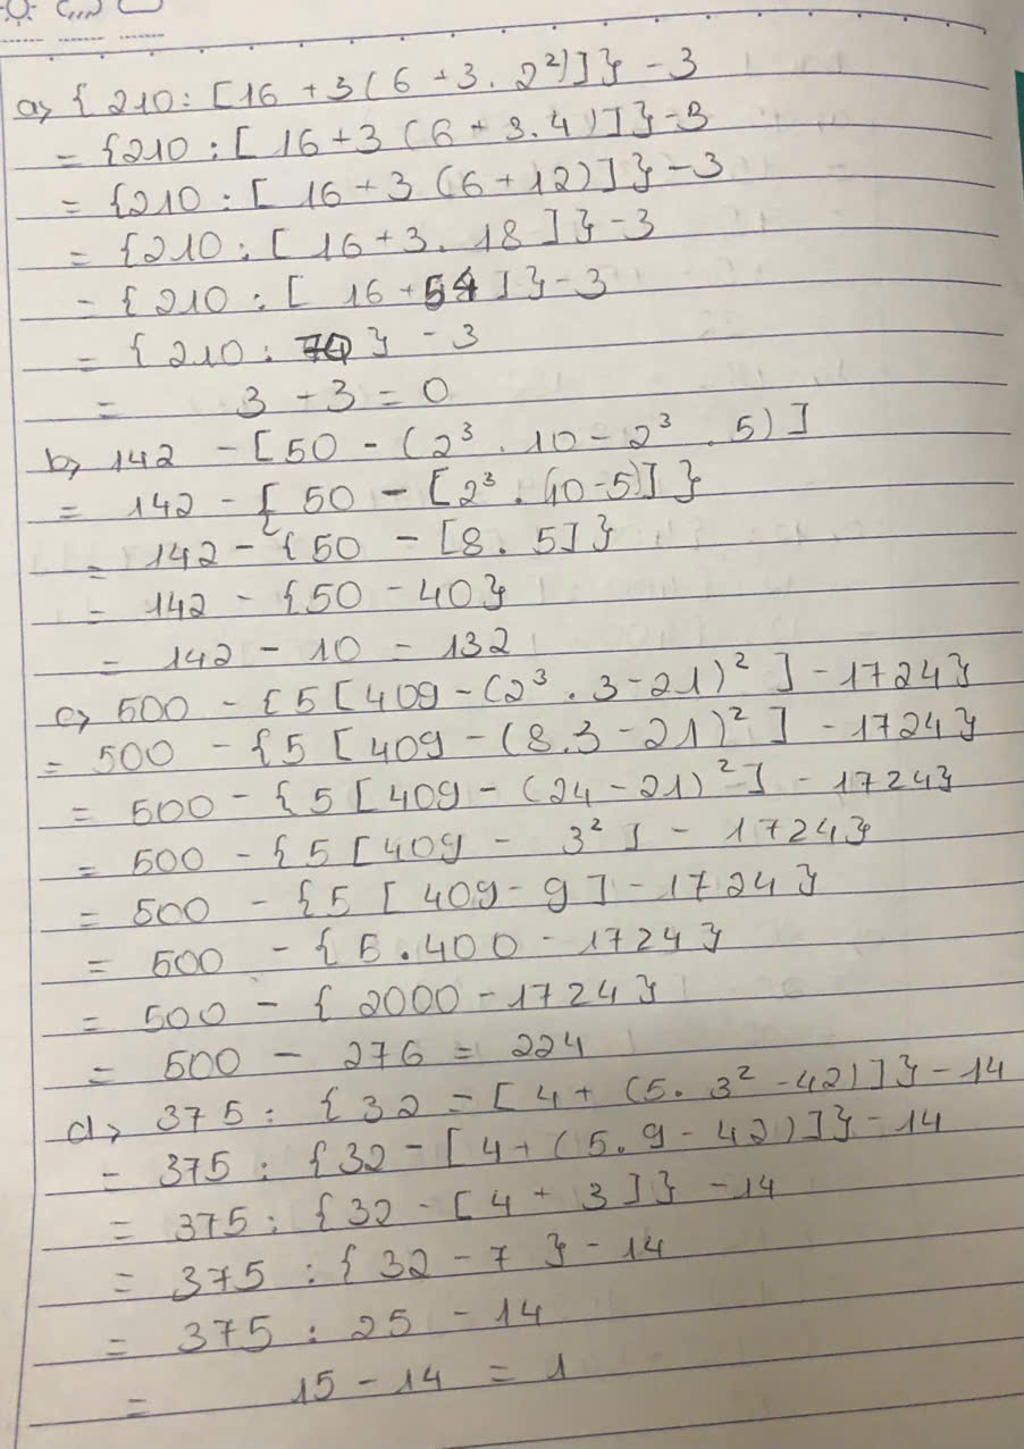 a, {210 : [16 + 3(6 + 3. 2²)]} - 3
= {210 : [ 16 + 3 (6 + 3.4)]} - 3
= {210 : [ 16 + 3 (6 + 12)]} - 3
= {210 : [ 16 + 3. 18 ]} - 3
= { 210 : [ 16 + 54 ]} - 3
= { 210 : 70 } - 3
= 3 - 3 = 0
b, 142 - [50 - (2³ . 10 - 2³ . 5)]
= 142 - { 50 - [2³ . (10 - 5)]}
= 142 - {50 - [8. 5]}
= 142 - {50 - 40}
= 142 - 10 = 132
c, 500 - {5[409 - (2³ . 3 - 21)² ] - 1724}
= 500 - {5 [409 - (8.3 - 21)² ] - 1724}
= 500 - {5 [409 - (24 - 21)²] - 1724}
= 500 - {5 [409 - 3² ] - 1724}
= 500 - {5 [ 409 - 9] - 1724}
= 500 - {5.400 - 1724}
= 500 - { 2000 - 1724}
= 500 - 276 = 224
d, 375 : {32 - [ 4 + (5. 3² - 42)]} - 14
= 375 : {32 - [4 + (5.9 - 42)]} - 14
= 375 : {32 - [4 + 3]} - 14
= 375 : { 32 - 7 } - 14
= 375 : 25 - 14
= 15 - 14 = 1